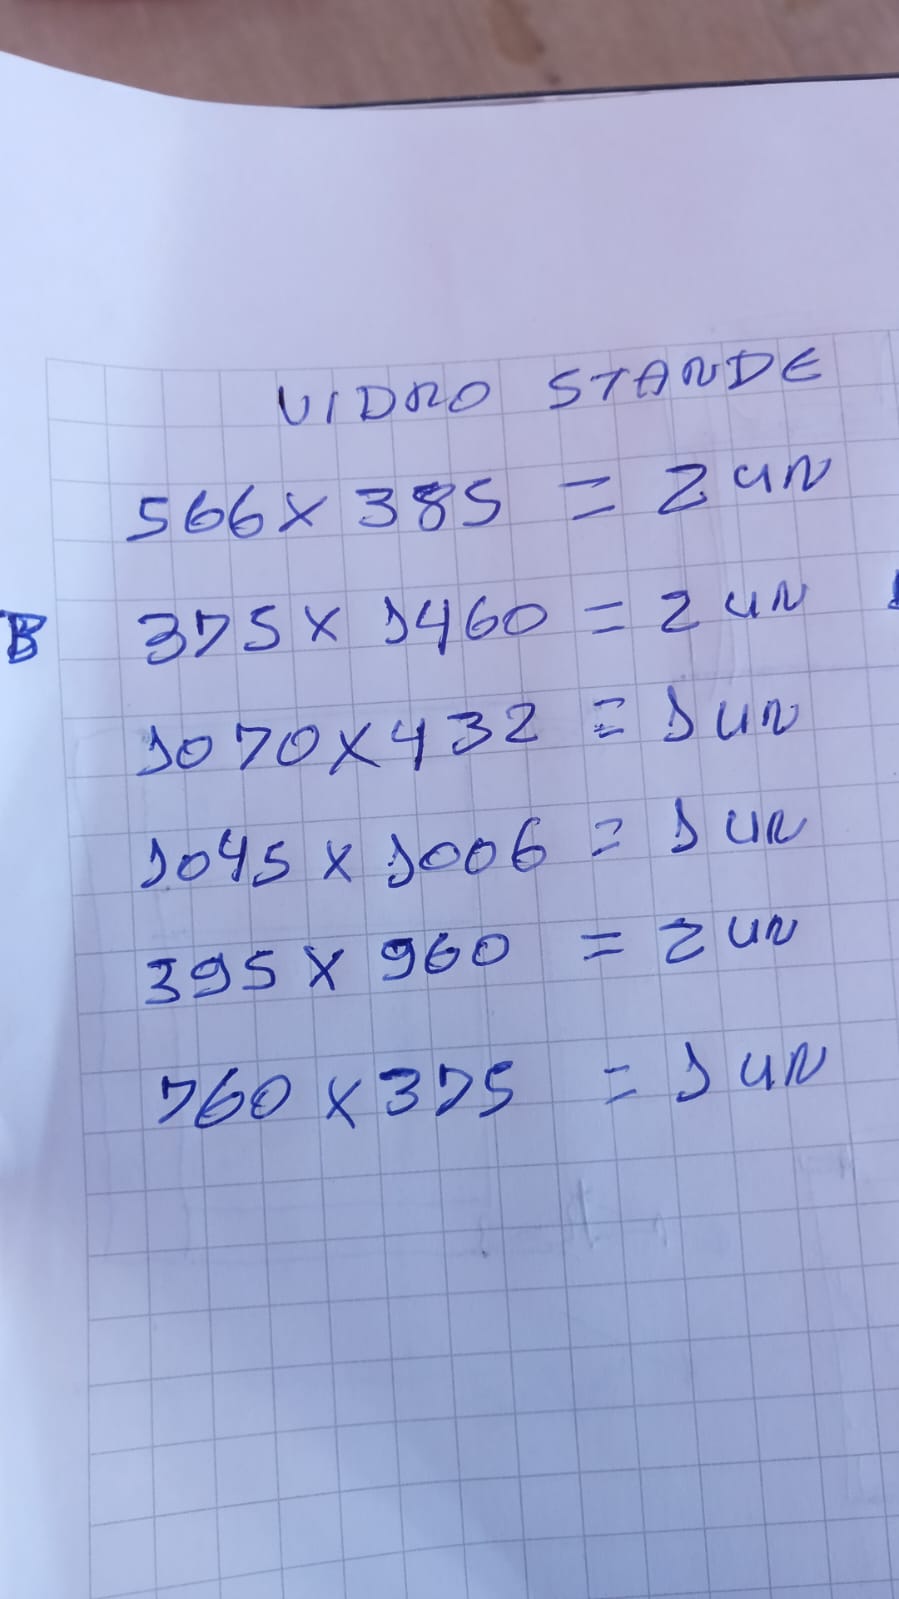 VIDRO STANDE
566 x 385 = 2 un
B 375 x 1460 = 2 un
1070 x 432 = 1 un
1045 x 1006 = 1 un
395 x 960 = 2 un
760 x 375 = 1 un